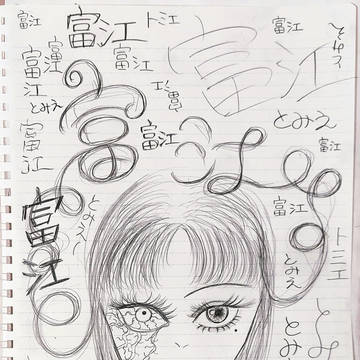 富江
富江
トミエ
富江
富江
富江
富江
富江
とみえ
富江
とみえ
富江
富江
富江
富江
とみえ
富江
富江
トミエ
とみえ
富江
とみ